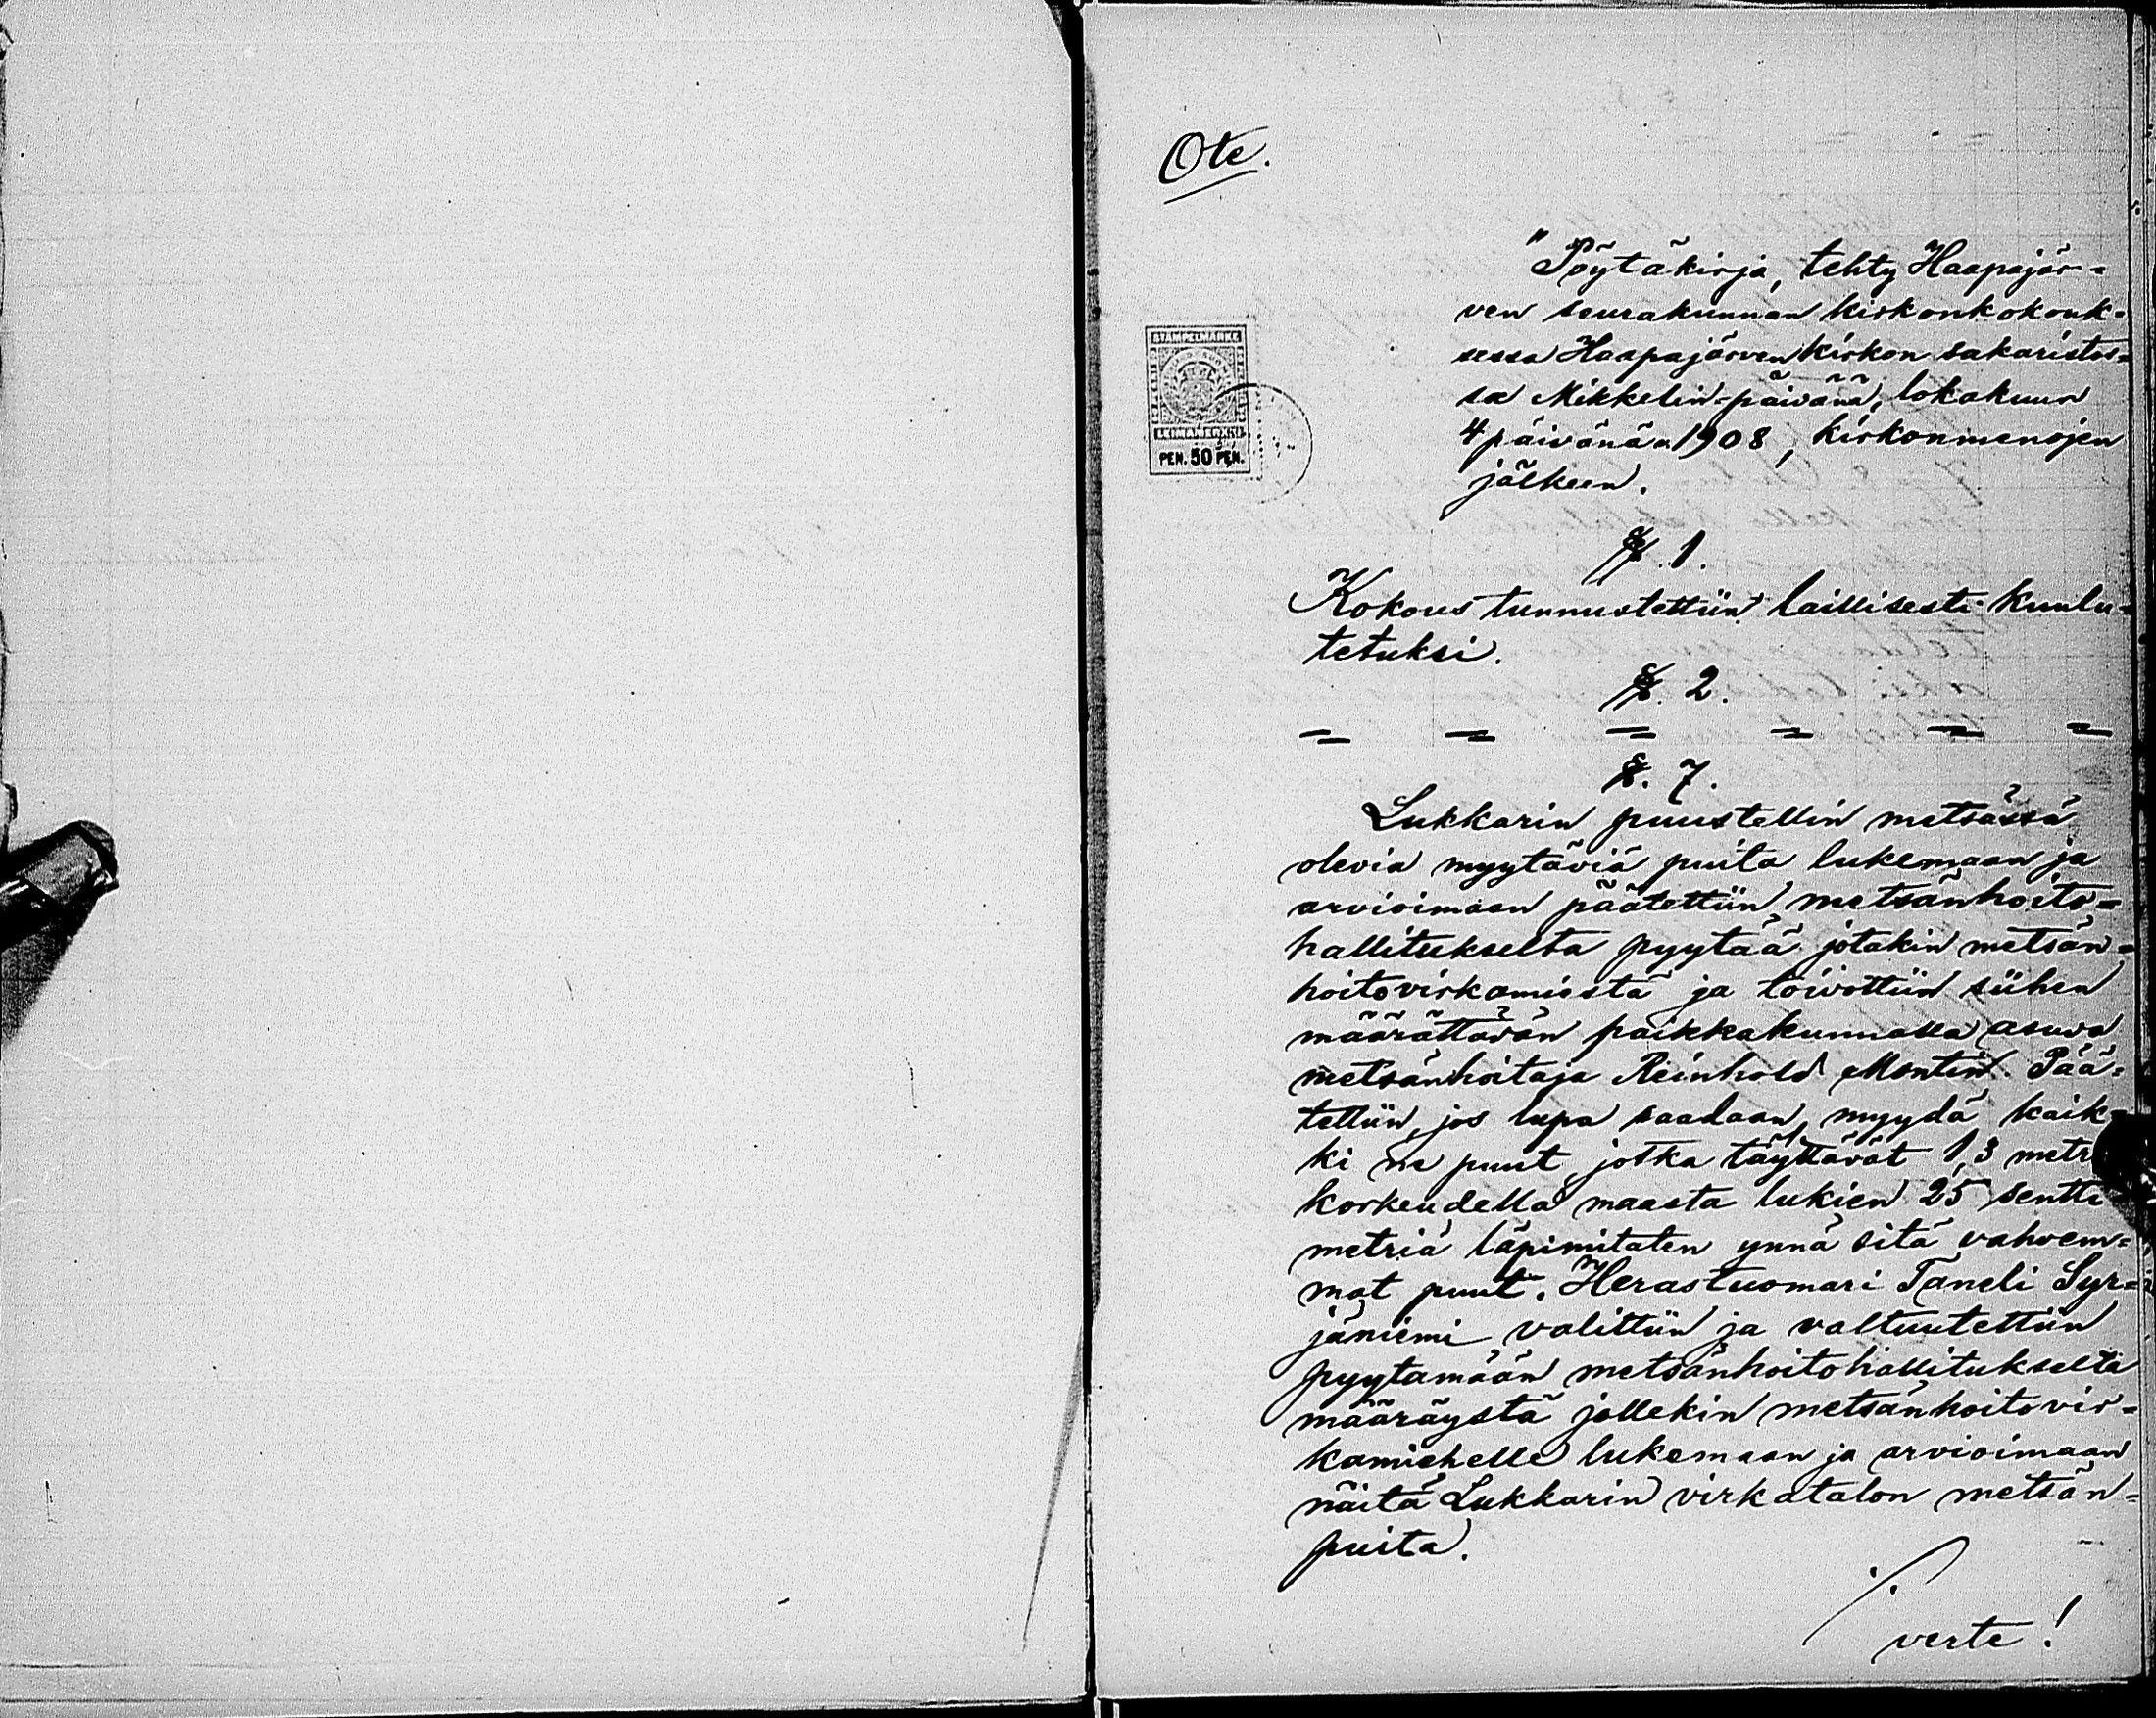 Ote.
"Pöytäkirja, tehty Haapajär=
ven seurakunnan kirkonkokouk=
sessa Haapajärven kirkon sakaristos=
sa Mikkelin-päivänä, lokakuun
4 päivänä 1908, kirkonmenojen
jälkeen.
STÄMPELMÄRKE
LEIMAMERKKI
PEN. 50 PEN.
§. 1.
Kokous tunnustettiin laillisesti kuulu=
tetuksi.
§. 2.
= = = = = =
§. 7.
Lukkarin puustellin metsässä
olevia myytäviä puita lukemaan ja
arvioimaan päätettiin metsänhoito=
hallitukselta pyytää jotakin metsän=
hoitovirkamiestä ja toivottiin siihen
määrättävän paikkakunnalla asuva
metsänhoitaja Reinhold Montin. Pää=
tettiin, jos lupa saadaan, myydä kaik=
ki ne puut, jotka täyttävät 1,3 metr
korkeudella maasta lukien 25 sentti=
metriä läpimitaten ynnä sitä vahvem=
mat puut. Herastuomari Taneli Syr=
jäniemi valittiin ja valtuutettiin
pyytamään metsänhoitohallitukselta
määräystä jollekin metsänhoitovir=
kamiehelle lukemaan ja arvioimaan
näitä Lukkarin virkatalon metsän=
puita.
./.
verte!